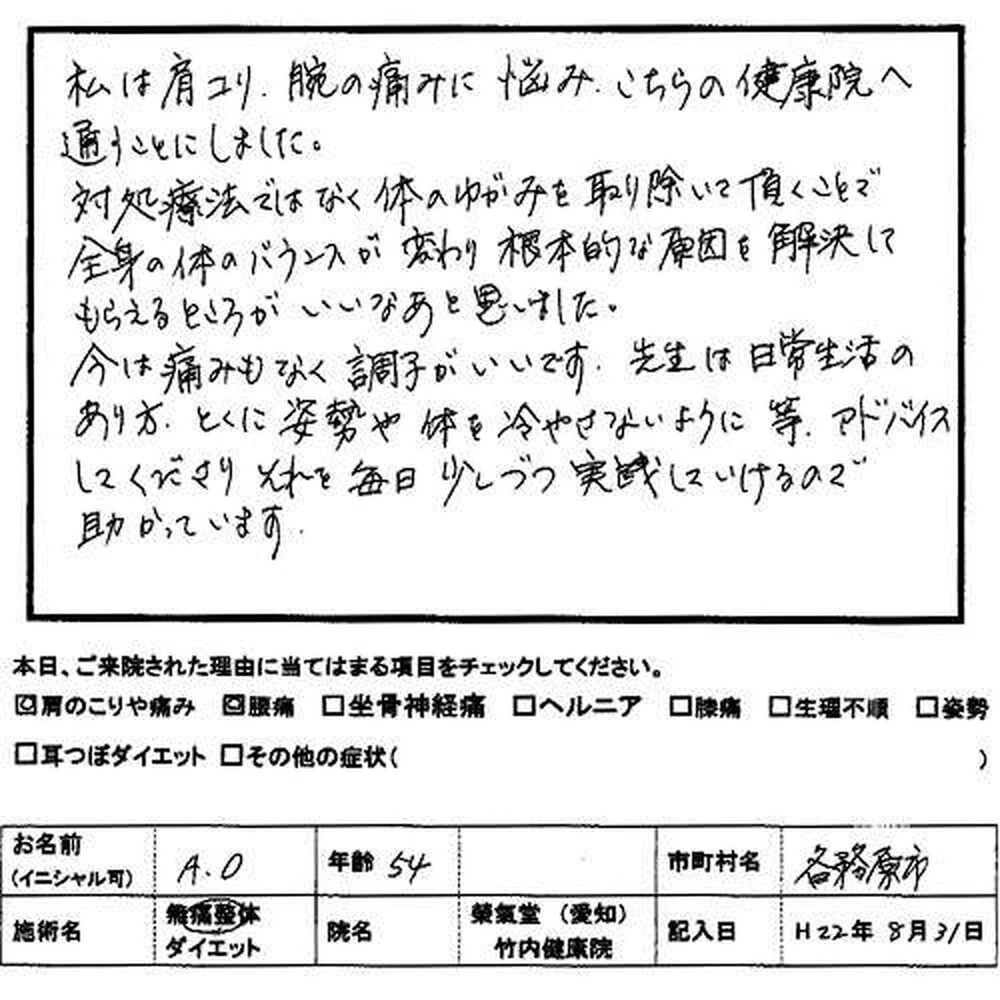 私は肩コリ、腕の痛みに悩み、こちらの健康院へ
通うことにしました。
対処療法ではなく体のゆがみを取り除いて頂くことで
全身の体のバランスが変わり根本的な原因を解決して
もらえるところがいいなあと思いました。
今は痛みもなく調子がいいです。先生は日常生活の
あり方、とくに姿勢や体を冷やさないように等、アドバイス
してくださりそれを毎日少しづつ実践していけるので
助かっています。
本日、ご来院された理由に当てはまる項目をチェックしてください。
☑肩のこりや痛み ☑腰痛 □坐骨神経痛 □ヘルニア □膝痛 □生理不順 □姿勢
□耳つぼダイエット □その他の症状( )
お名前 (イニシャル可) A.O 年齢 54 市町村名 各務原市
施術名 無痛整体 ダイエット 院名 榮氣堂（愛知） 竹内健康院 記入日 H22年 8月31日